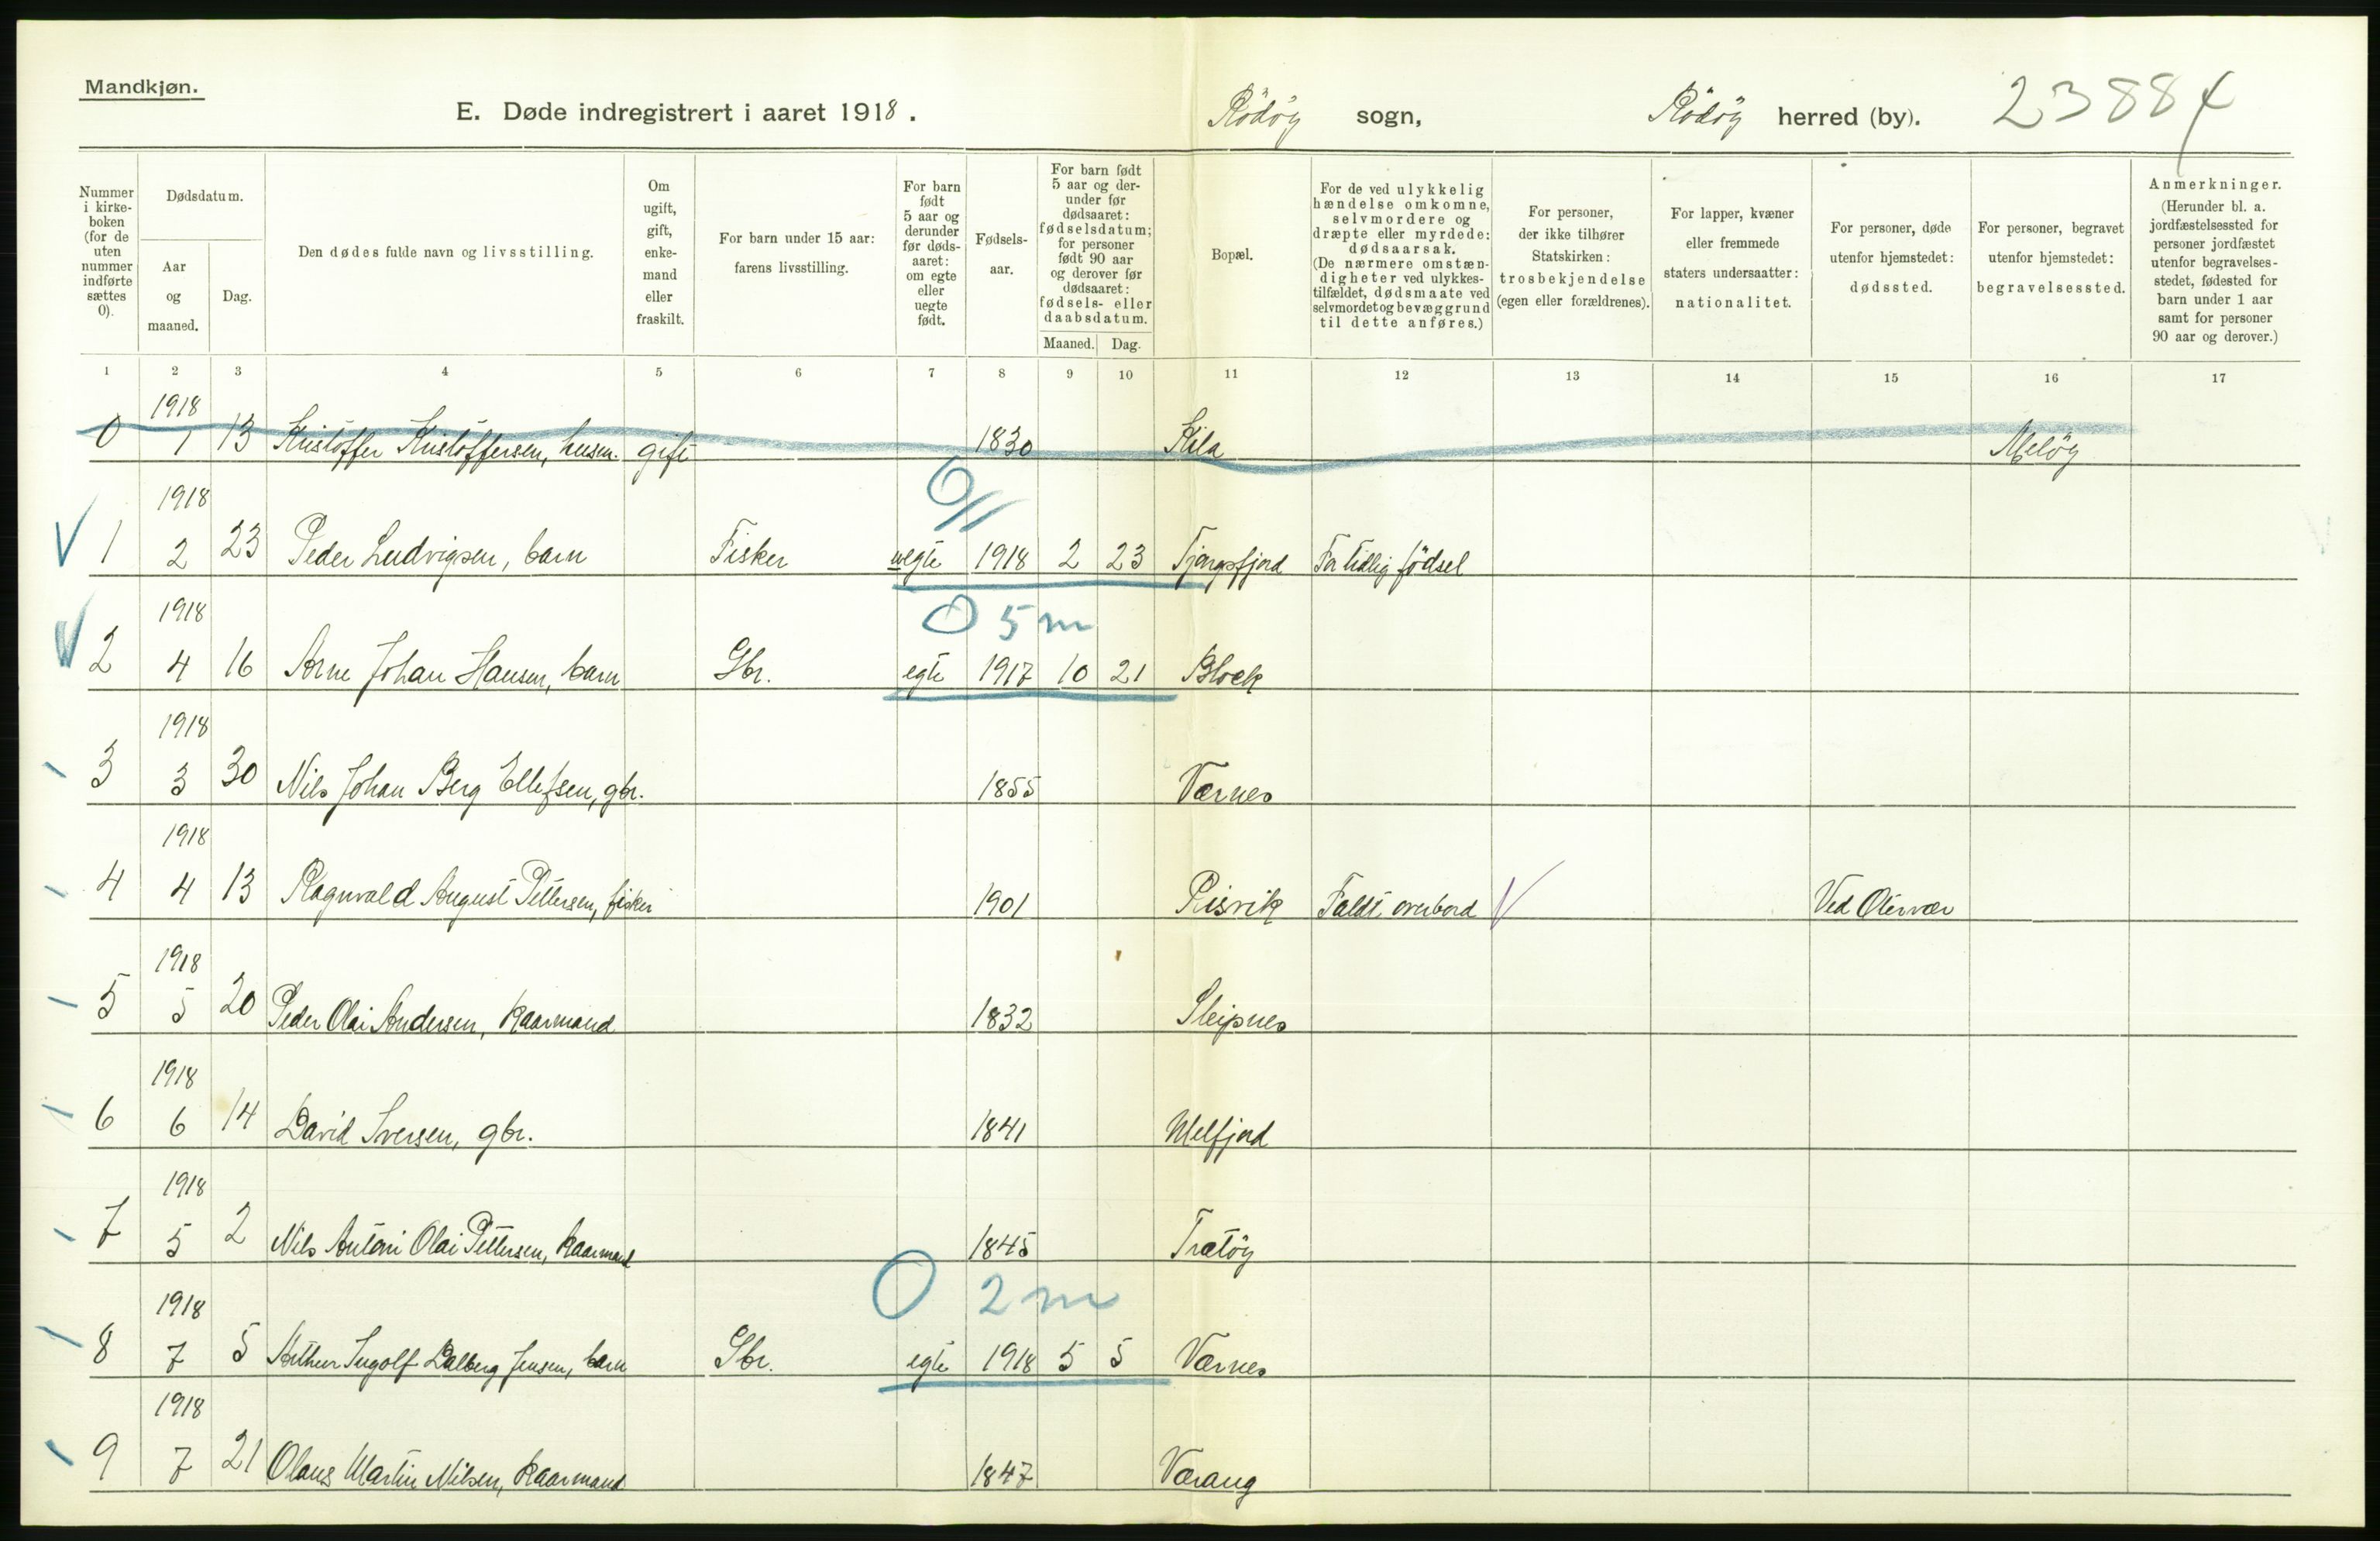 Mandkjøn.
E. Døde indregistrert i aaret 1918. Rödöy sogn, Rödöy herred (by). 23884
Nummer i kirke-boken (for de uten nummer indførte sættes 0).
Dødsdatum.
Aar og maaned.
Dag.
Den dødes fulde navn og livsstilling.
Om ugift, gift, enke-mand eller fraskilt.
For barn under 15 aar: farens livsstilling.
For barn født 5 aar og derunder før døds-aaret: om egte eller uegte født.
Fødsels-aar.
For barn født 5 aar og der-under før dødsaaret: fødselsdatum; for personer født 90 aar og derover før dødsaaret: fødsels- eller daabsdatum.
Maaned. Dag.
Bopæl.
For de ved ulykkelig hændelse omkomne, selvmordere og dræpte eller myrdede: dødsaarsak. (De nærmere omstæn-digheter ved ulykkes-tilfældet, dødsmaate ved selvmordet og bevæggrund til dette anføres.)
For personer, der ikke tilhører Statskirken: trosbekjendelse (egen eller forældrenes).
For lapper, kvæner eller fremmede staters undersaatter: nationalitet.
For personer, døde utenfor hjemstedet: dødssted.
For personer, begravet utenfor hjemstedet: begravelsessted.
Anmerkninger. (Herunder bl. a. jordfæstelsessted for personer jordfæstet utenfor begravelses-stedet, fødested for barn under 1 aar samt for personer 90 aar og derover.)
1 2 3 4 5 6 7 8 9 10 11 12 13 14 15 16 17
1918
0 1 13 Kristoffer Kristoffersen, husm. gift 1830 Kila Meløy
1918
1 2 23 Peder Ludvigsen, barn Fisker uegte 1918 2 23 Tjongsfjord For tidlig födsel
1918 0 5 m
2 4 16 Arne Johan Hansen, barn Gbr. egte 1917 10 21 Blok
1918
3 3 30 Nils Johan Berg Ellefsen, gbr. 1855 Værnes
1918
4 4 13 Ragnvald August Pettersen, fisker 1901 Risvik Faldt overbord Ved Otervær
1918
5 5 20 Peder Olai Andersen, kaarmand 1832 Sleipnes
1918
6 6 14 David Iversen, gbr. 1841 Melfjord
1918
7 5 2 Nils Antoni Olai Pettersen, kaarmand 1845 Trætöy
1918 0 2 m
8 7 5 Arthur Ingolf Dalberg Jensen, barn Gbr. egte 1918 5 5 Værnes
1918
9 7 21 Olaus Martin Nilsen, kaarmand 1847 Værang